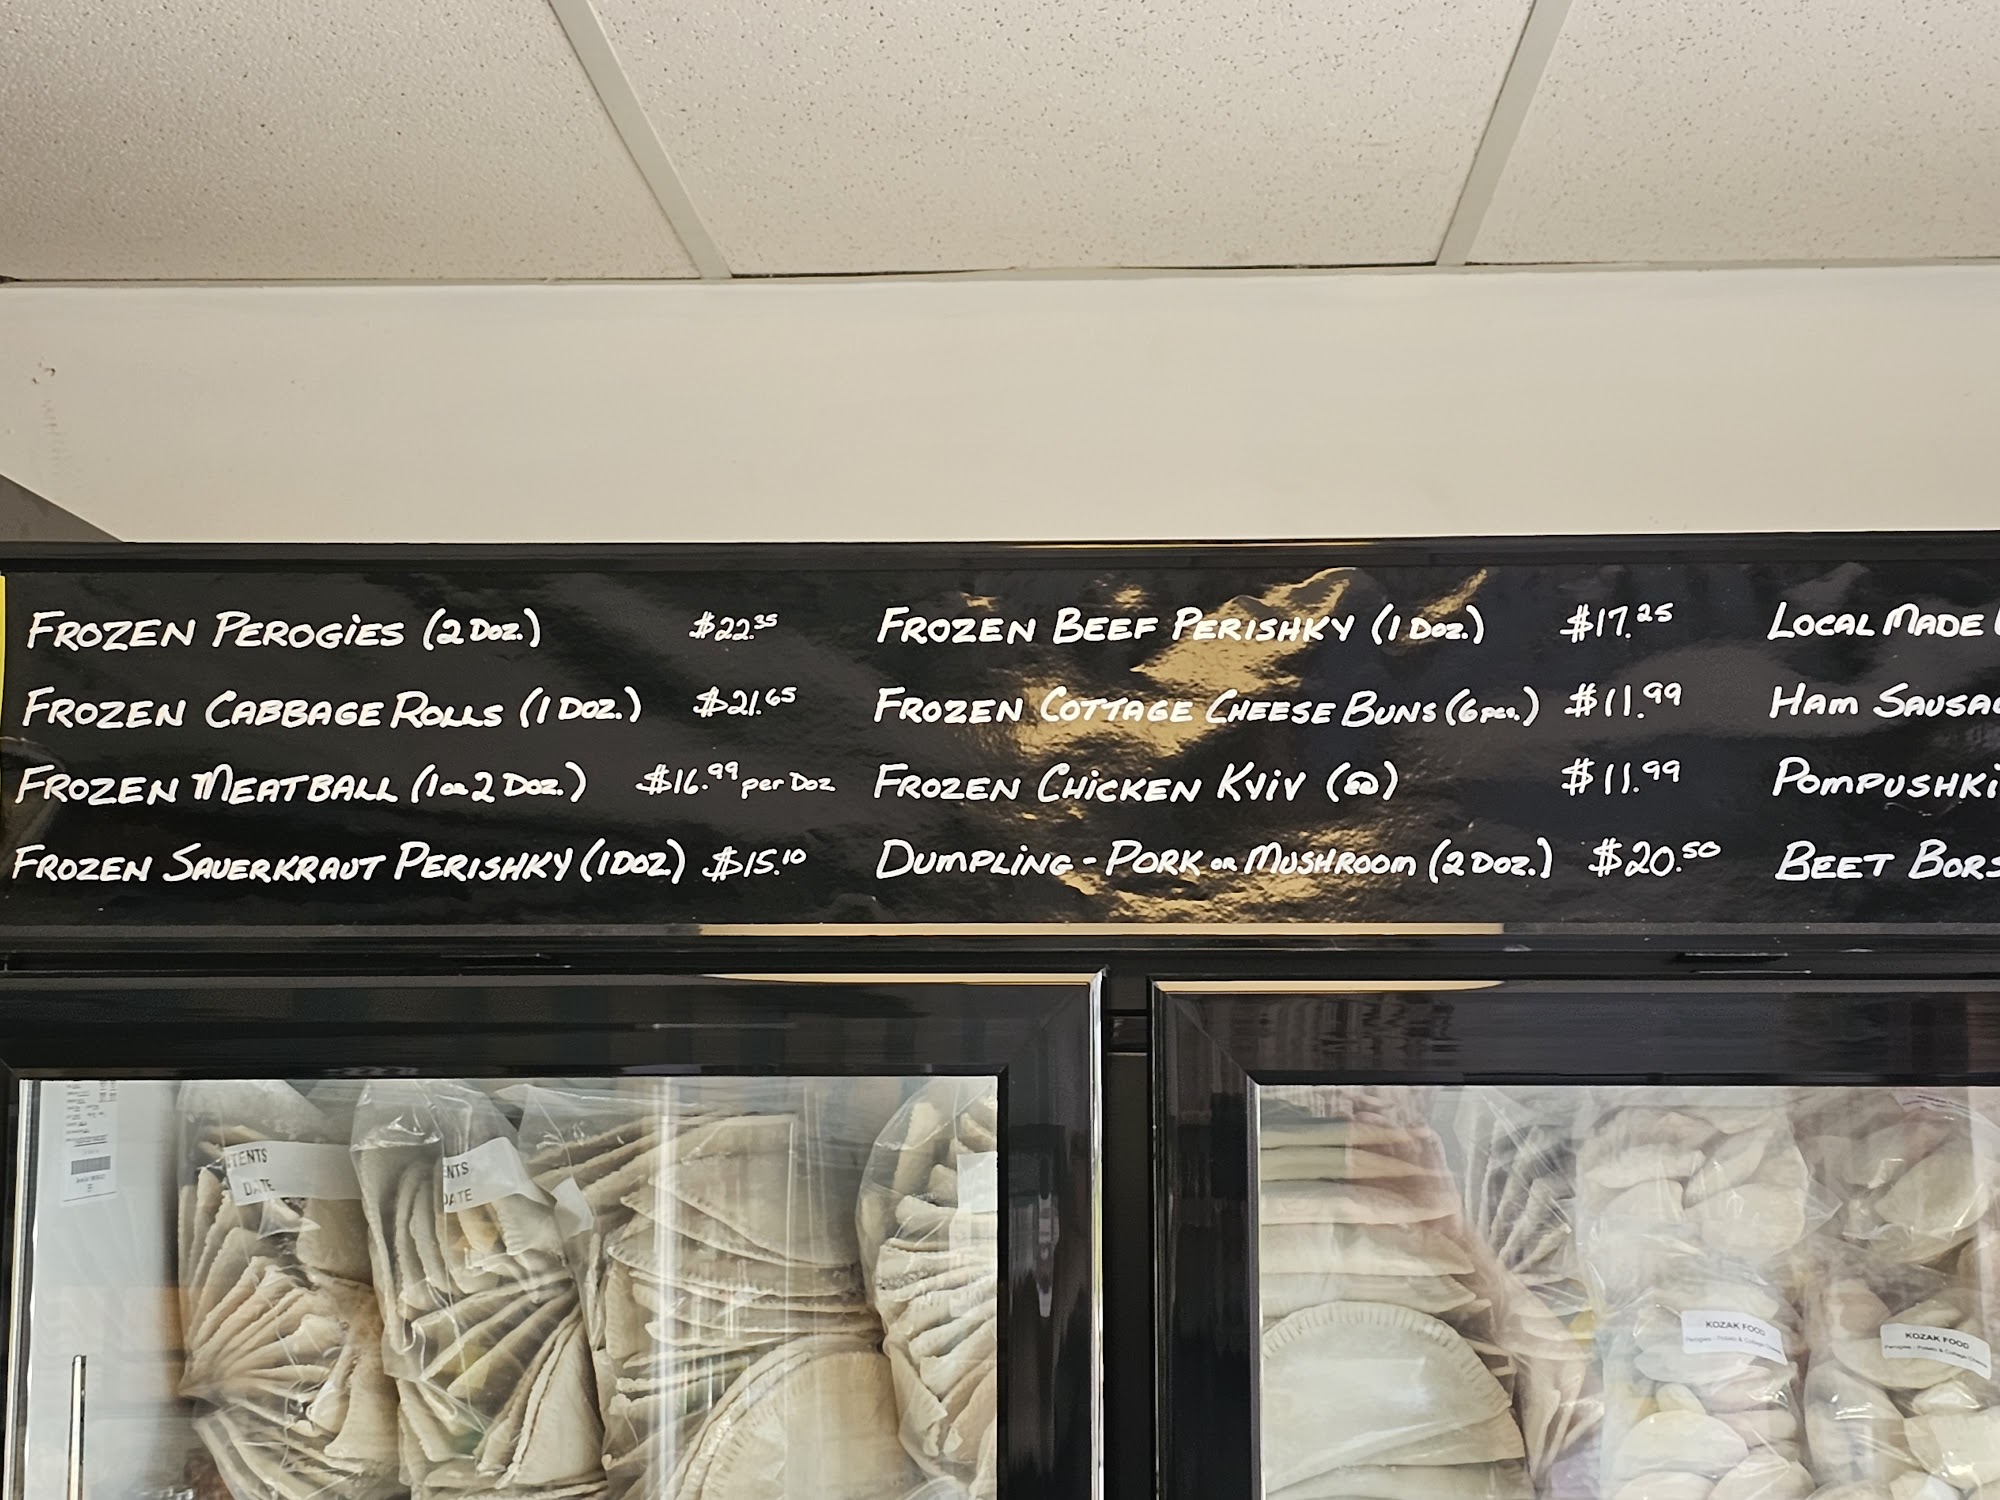 FROZEN PEROGIES (2 DOZ.) $22.35
FROZEN CABBAGE ROLLS (1 DOZ.) $21.65
FROZEN MEATBALL (1 OR 2 DOZ.) $16.99 per Doz
FROZEN SAUERKRAUT PERISHKY (1 DOZ) $15.10
FROZEN BEEF PERISHKY (1 DOZ.) $17.25
FROZEN COTTAGE CHEESE BUNS (6 pcs.) $11.99
FROZEN CHICKEN KYIV (ea) $11.99
DUMPLING - PORK OR MUSHROOM (2 DOZ.) $20.50
LOCAL MADE
HAM
POMPUSHKI
BEET
DATE
KOZAK FOOD
Perogies - Potato & Cottage
KOZAK FOOD
Perogies - Potato & Cottage